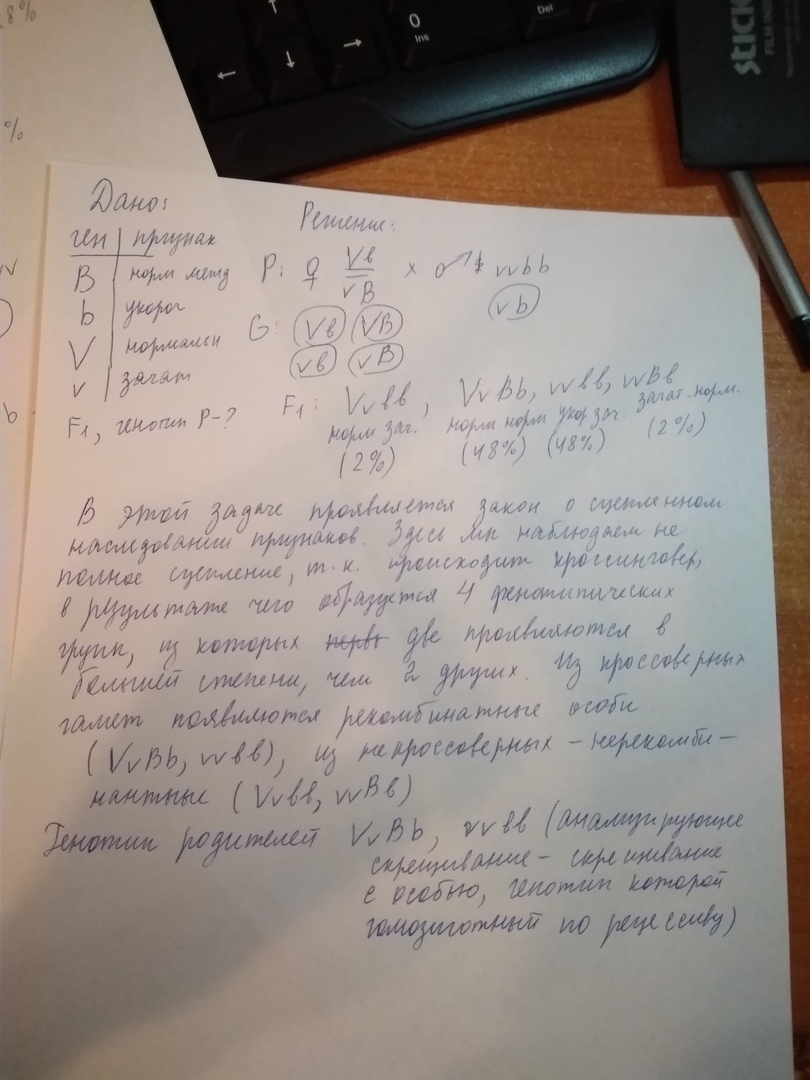 8%
%
Ins
Del
STICK
FILM
Дано:
Решение:
ген | признак
B норм. метд
b укорог
V нормальн
v зачат
F₁, генотип P-?
P: ♀ Vв/vB × ♂ vvbb
G: Vв VB vb
vв vB
F₁: Vvвв, VvBb, vvвв, vvBв
норм заг. норм. норм укор заг. зачат. норм.
(2%) (48%) (48%) (2%)
В этой задаче проявляется закон о сцепленном
наследовании признаков. Здесь мы наблюдаем не
полное сцепление, т.к. происходит кроссинговер,
в результате чего образуется 4 фенотипических
групп, из которых две проявляются в
большей степени, чем 2 других. Из кроссоверных
гамет появляются рекомбинатные особи
(VvBb, vvвв), из некроссоверных – нерекомби–
нантные (Vvвв, vvBв)
Генотип родителей VvBb, vvвв (анализирующее
скрещивание – скрещивание
с особью, генотип которой
гомозиготный по рецессиву)